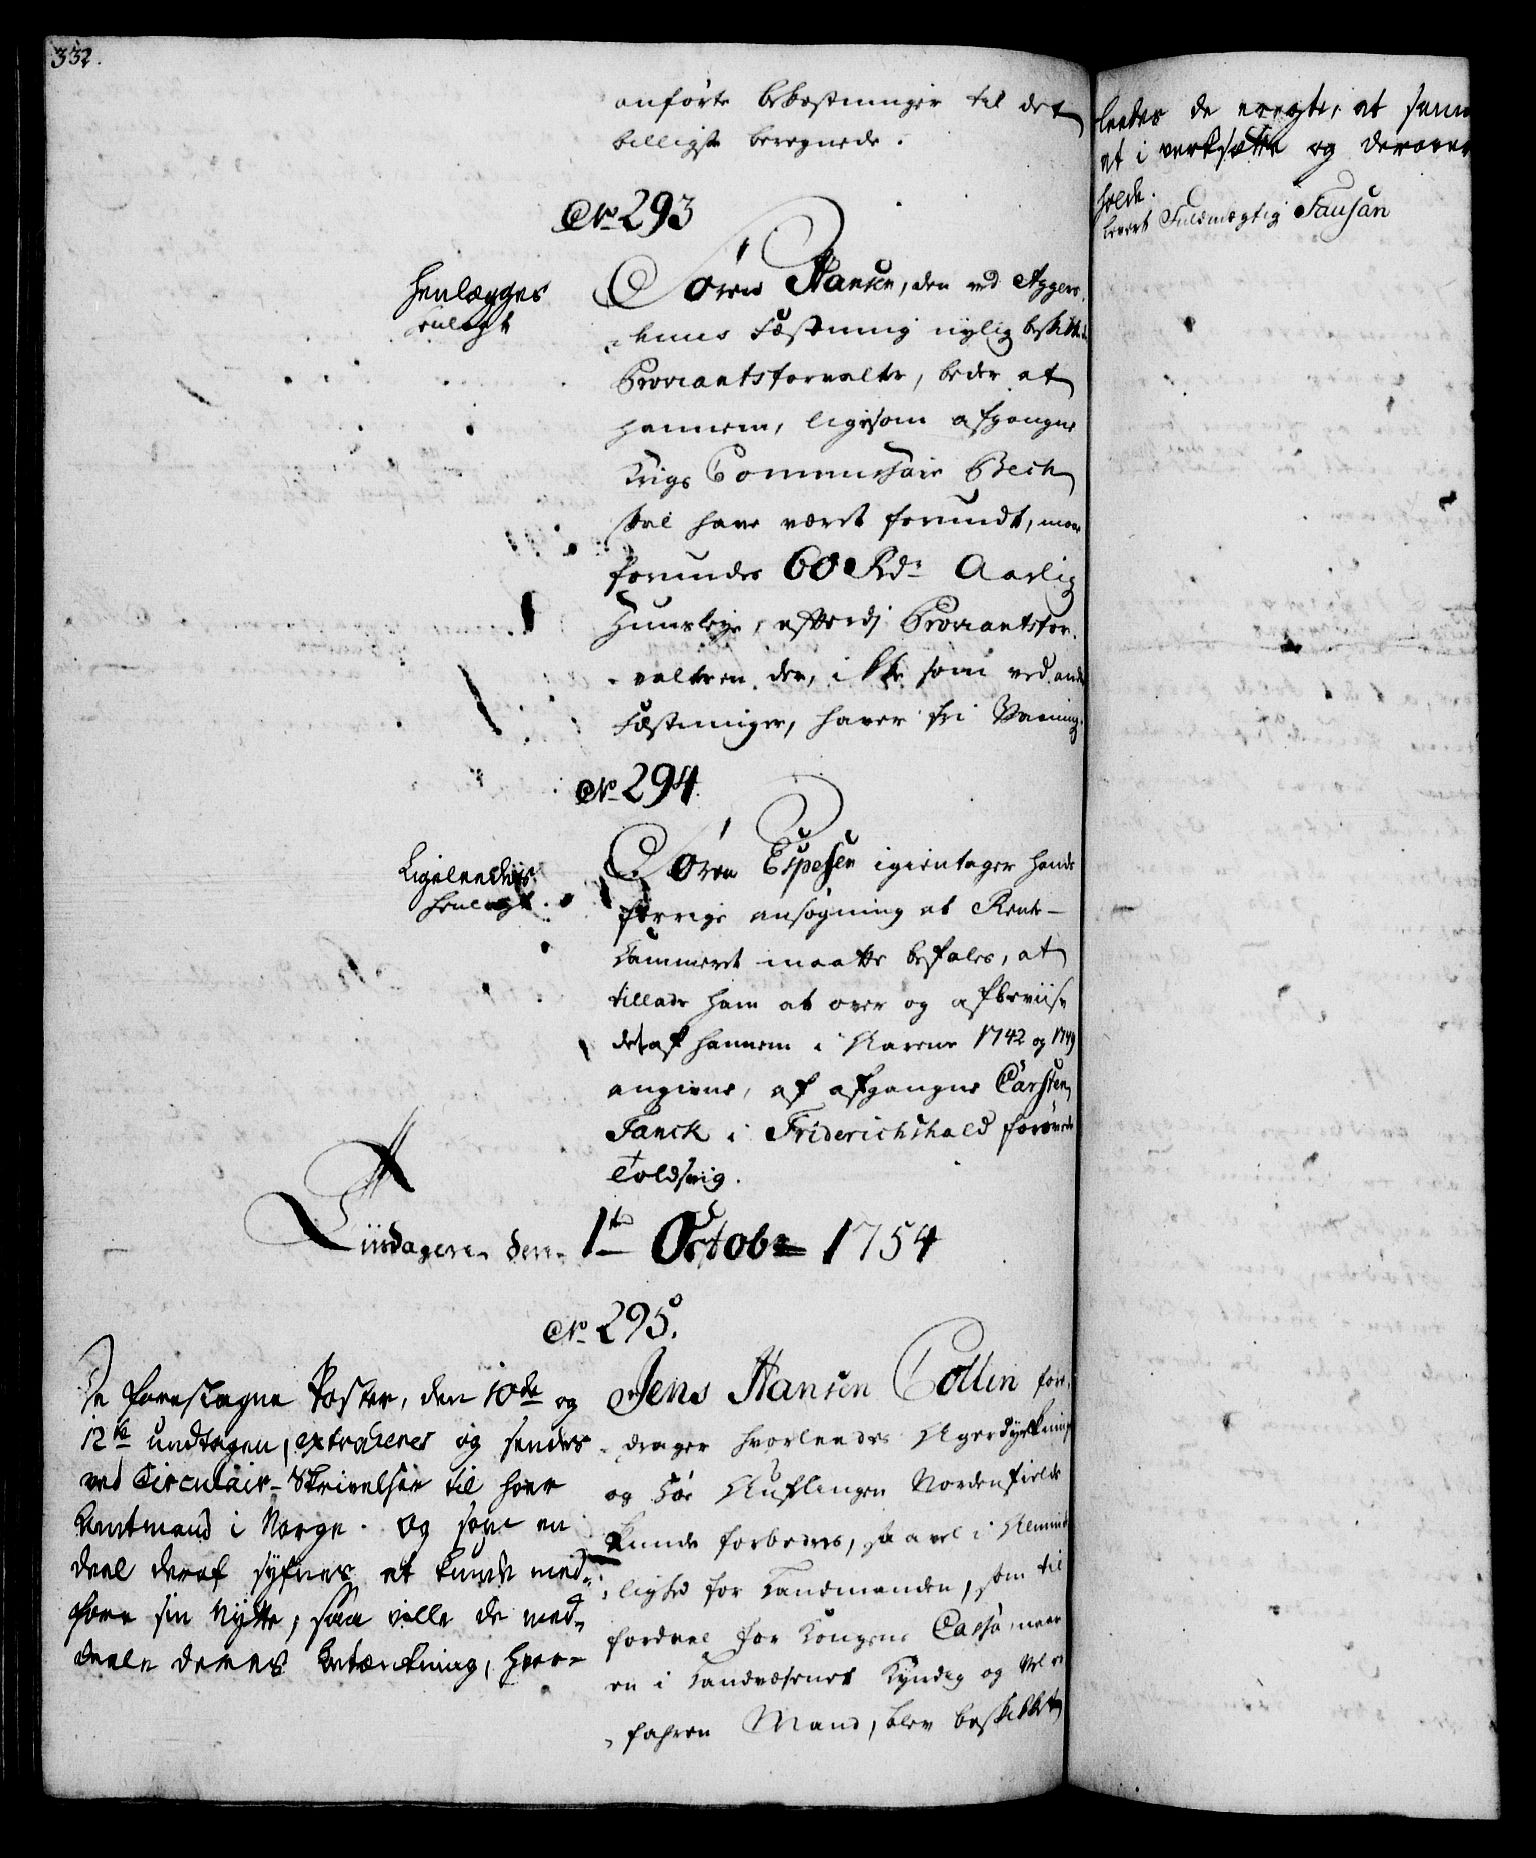 332.
anførte bekostninger til det
billigste beregnede.
No 293
Henlægges
henlagt
Søren Hansen, den ved Aggers-
huus Fæstning nylig beskikkede
Proviantforvalter, beder at
hannem, ligesom afgangne
Krigs Commissair Bech
skal have været forundt, maae
forundes 60 Rdr Aarlig
Huusleye, efterdj Proviantsfor-
valteren der, ikke som ved andre
Fæstninger, haver fri Vaaning.
No 294
Ligeleedes
henlagt
Søren Espesen igientager hands
forrige ansøgning at Rente-
Kammeret maatte befales, at
tillade ham at over og afbeviise
det af hannem i Aarene 1742 og 1749
angivne, af afgangne Carsten
Tanck i Friderichshald forøvede
Toldsvig.
Tiisdagen den 1te Octobr 1754
No 295.
De foreslagne Poster, den 10de og
12te undtagen, extraheres og sendes
ved Circulair-Skrivelser til hver
Amtmand i Norge. Og som en
deel deraf synes at kunde med-
føre sin Nytte, saa ville de med-
deele deres betænkning, hvor-
Jens Hansen Collin fore-
drager hvorleedes Agerdyrkning
og Qvæg Auflingen Nordenfields
kunde forbedres, saavel i Almind-
lighed for Landmanden, som til
fordeel for Kongens Cassa, naar
en i Landvæsenet Kyndig og vel er-
fahren Mand, blev beskikket
leedes de eragte, at samme
at i verksætte og derover
holde.
levert Fuldmægtig Fausan